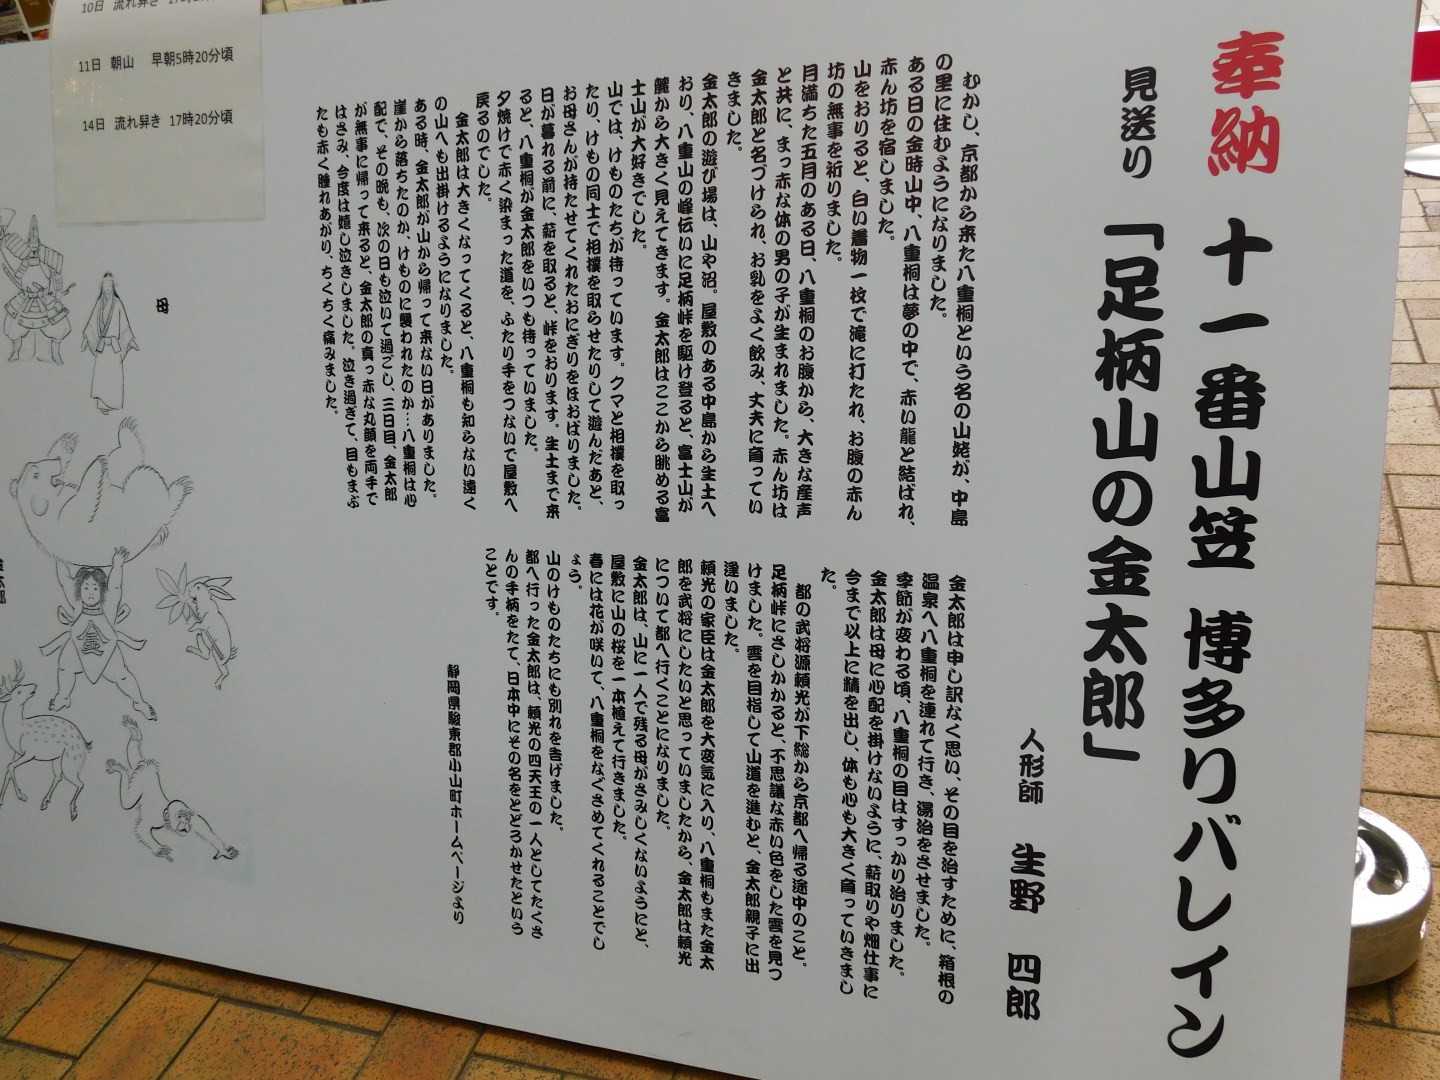 奉納 十一番山笠 博多リバレイン
見送り 「足柄山の金太郎」
人形師 生野 四郎
むかし、京都から来た八重桐という名の山姥が、中島
の里に住むようになりました。
ある日の金時山中、八重桐は夢の中で、赤い龍と結ばれ、
赤ん坊を宿しました。
山をおりると、白い着物一枚で滝に打たれ、お腹の赤ん
坊の無事を祈りました。
月満ちた五月のある日、八重桐のお腹から、大きな産声
と共に、まっ赤な体の男の子が生まれました。赤ん坊は
金太郎と名づけられ、お乳をよく飲み、丈夫に育ってい
きました。
金太郎の遊び場は、山や沼。屋敷のある中島から生土へ
おり、八重山の峰伝いに足柄峠を駆け登ると、富士山が
麓から大きく見えてきます。金太郎はここから眺める富
士山が大好きでした。
山では、けものたちが待っています。クマと相撲を取っ
たり、けもの同士で相撲を取らせたりして遊んだあと、
お母さんが持たせてくれたおにぎりをほおばりました。
日が暮れる前に、薪を取ると、峠をおります。生土まで来
ると、八重桐が金太郎をいつも待っていました。
夕焼けで赤く染まった道を、ふたり手をつないで屋敷へ
戻るのでした。
金太郎は大きくなってくると、八重桐も知らない遠く
の山へも出掛けるようになりました。
ある時、金太郎が山から帰って来ない日がありました。
崖から落ちたのか、けものに襲われたのか…八重桐は心
配で、その晩も、次の日も泣いて過ごし、三日目、金太郎
が無事に帰って来ると、金太郎の真っ赤な丸顔を両手で
はさみ、今度は嬉し泣きしました。泣き過ぎて、目もまぶ
たも赤く腫れあがり、ちくちく痛みました。
金太郎は申し訳なく思い、その目を治すために、箱根の
温泉へ八重桐を連れて行き、湯治をさせました。
季節が変わる頃、八重桐の目はすっかり治りました。
金太郎は母に心配を掛けないように、薪取りや畑仕事に
今まで以上に精を出し、体も心も大きく育っていきまし
た。
都の武将源頼光が下総から京都へ帰る途中のこと。
足柄峠にさしかかると、不思議な赤い色をした雲を見つ
けました。雲を目指して山道を進むと、金太郎親子に出
逢いました。
頼光の家臣は金太郎を大変気に入り、八重桐もまた金太
郎を武将にしたいと思っていましたから、金太郎は頼光
について都へ行くことになりました。
金太郎は、山に一人で残る母がさみしくないようにと、
屋敷に山の桜を一本植えて行きました。
春には花が咲いて、八重桐をなぐさめてくれることでし
ょう。
山のけものたちにも別れを告げました。
都へ行った金太郎は、頼光の四天王の一人としてたくさ
んの手柄をたて、日本中にその名をとどろかせたという
ことです。
静岡県駿東郡小山町ホームページより
10日 流れ舁き
11日 朝山 早朝5時20分頃
14日 流れ舁き 17時20分頃
母
金
金太郎